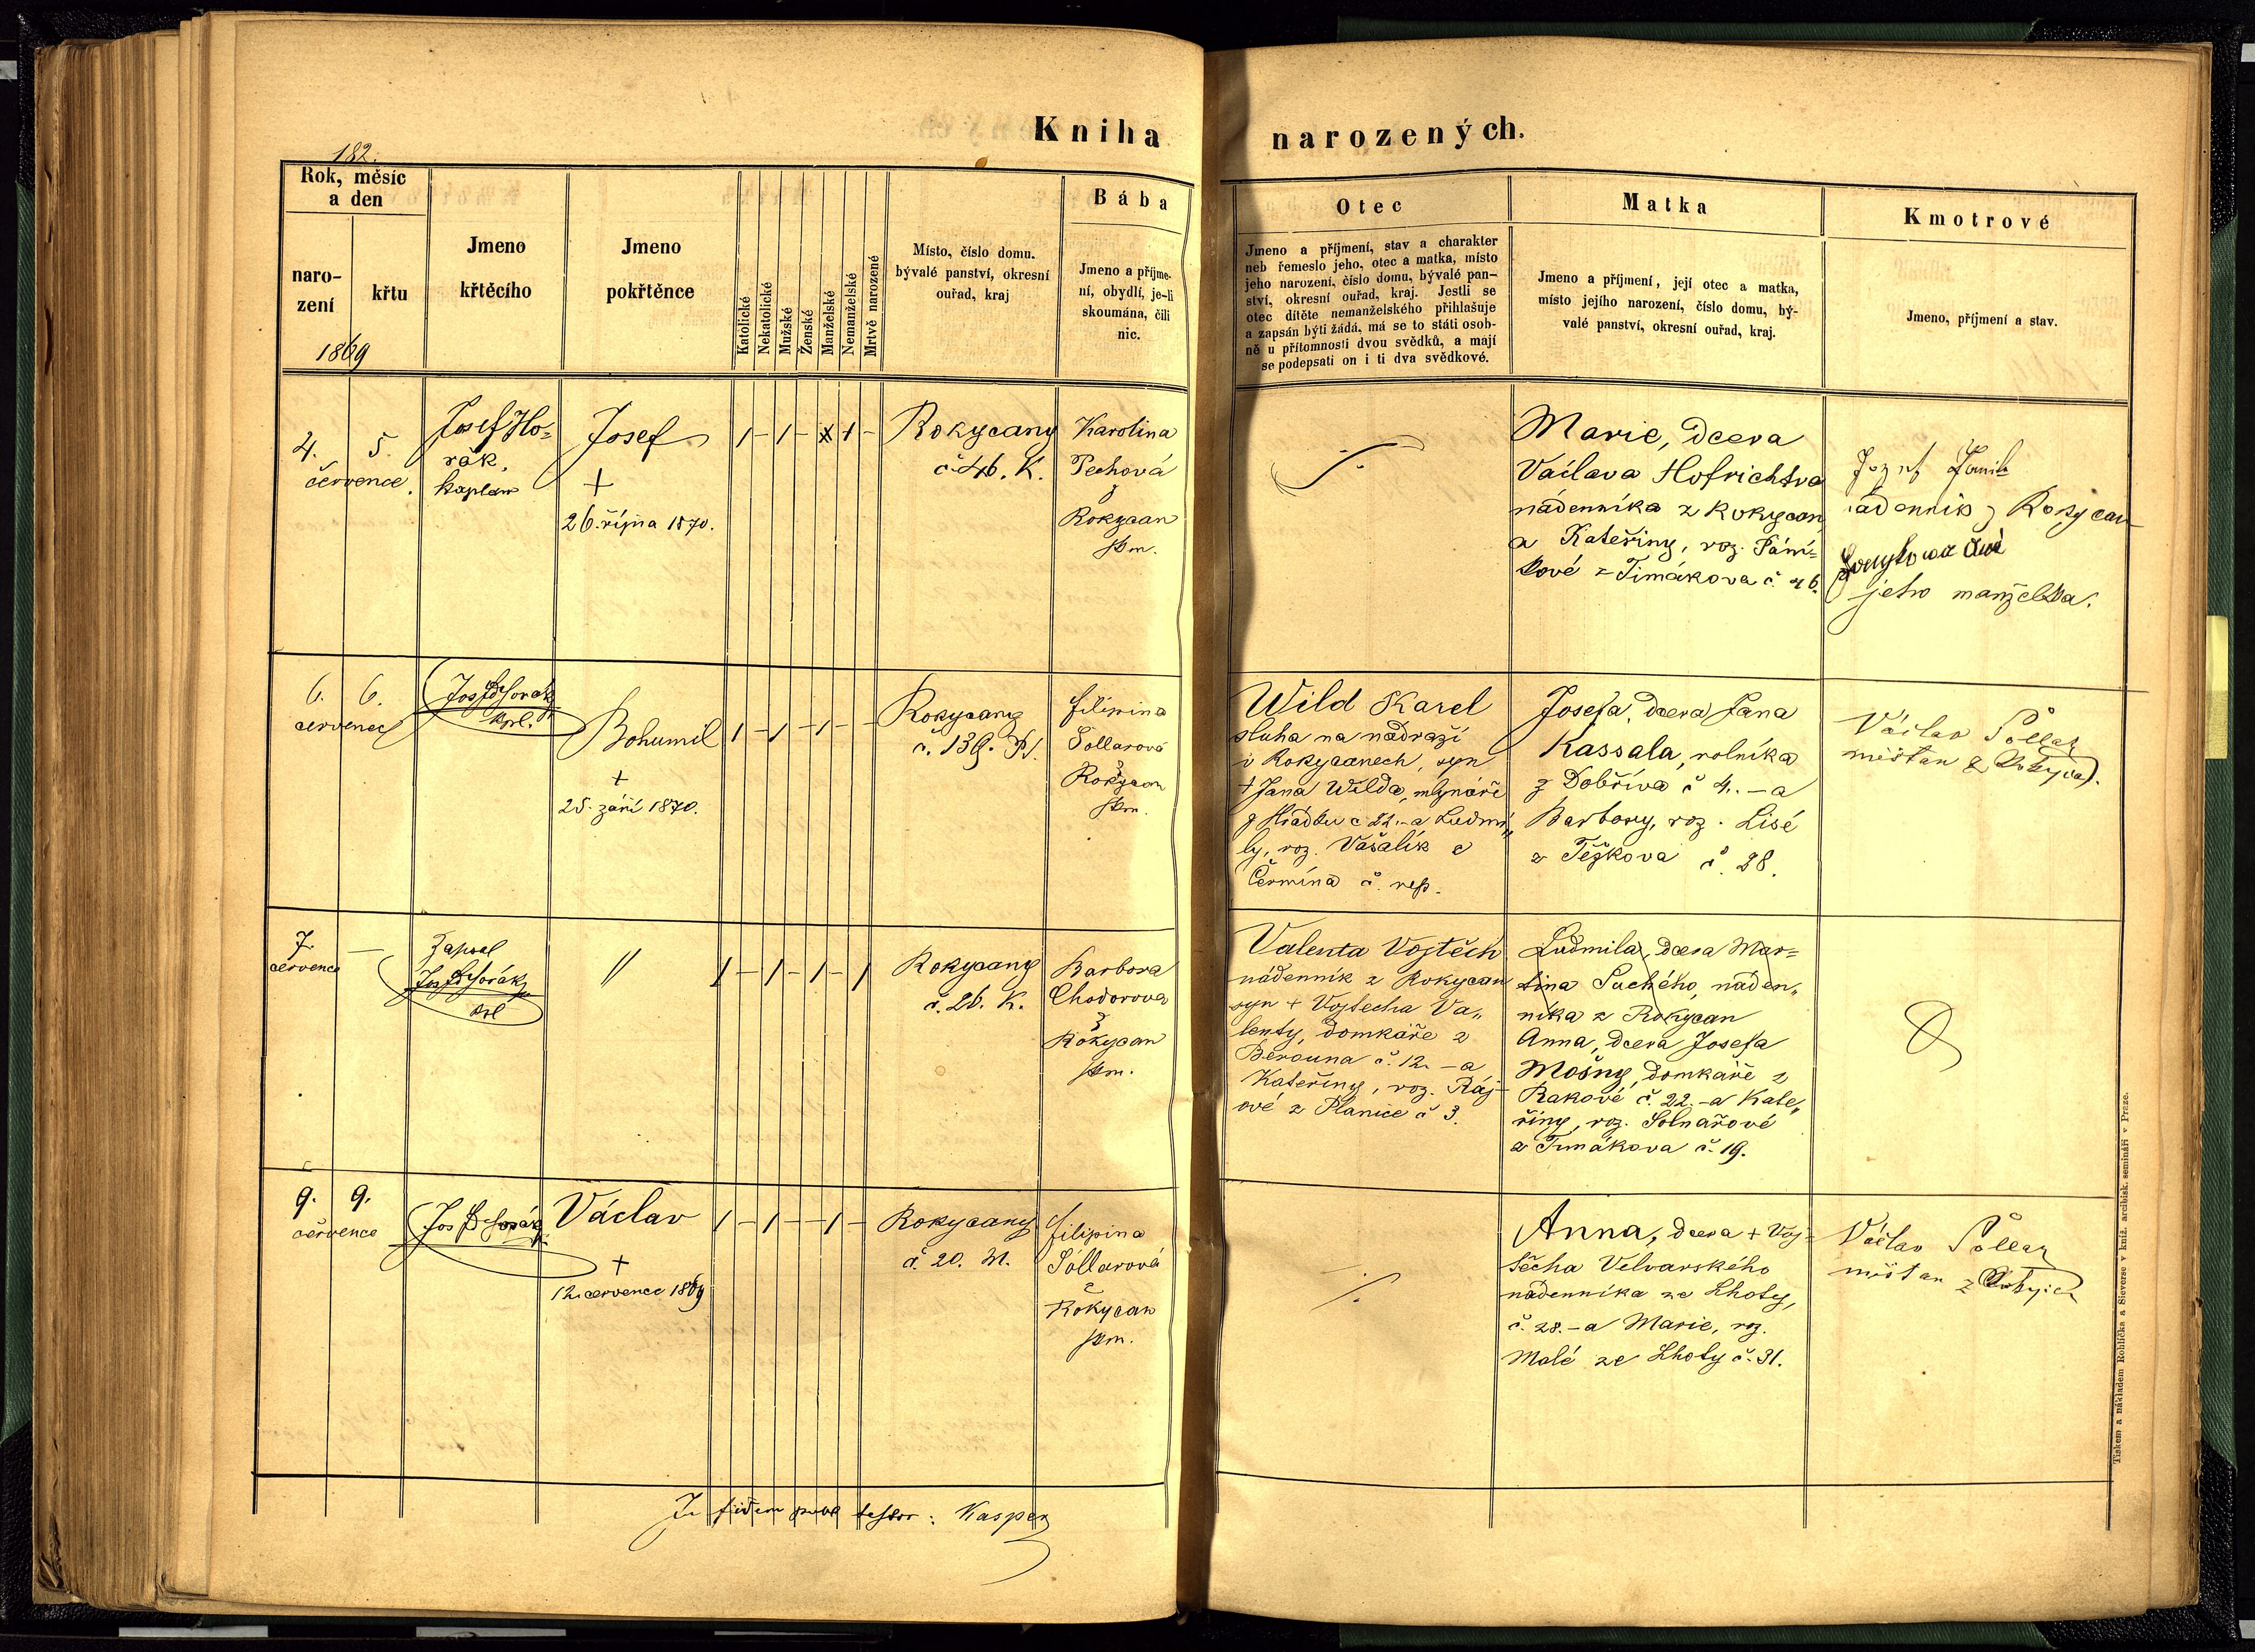 Kniha narozených.
182.
Rok, měsíc
a den
naro-
zení
křtu
1869
Jmeno
křtěcího
Jmeno
pokřtěnce
Katolické
Nekatolické
Mužské
Ženské
Manželské
Nemanželské
Mrtvě narozené
Místo, číslo domu.
bývalé panství, okresní
ouřad, kraj
Bába
Jmeno a příjme-
ní, obydlí, je-li
skoumána, čili
nic.
Otec
Jmeno a příjmení, stav a charakter
neb řemeslo jeho, otec a matka, místo
jeho narození, číslo domu, bývalé pan-
ství, okresní ouřad, kraj. Jestli se
otec dítěte nemanželského přihlašuje
a zapsán býti žádá, má se to státi osob-
ně u přítomnosti dvou svědků, a mají
se podepsati on i ti dva svědkové.
Matka
Jmeno a příjmení, její otec a matka,
místo jejího narození, číslo domu, bý-
valé panství, okresní ouřad, kraj.
Kmotrové
Jmeno, příjmení a stav.
4. 5.
července.
Josef Ho-
rák,
kaplan
Josef
+
26. října 1870.
1 – 1 – x 1 –
Rokycany
č. 46. K.
Karolina
Pechová
z
Rokycan
skm.
Marie, dcera
Václava Hofrichtra
nádenníka z Rokycan
a Kateřiny, roz. Pání-
kové z Timákova č. 46.
Jozef
nádenník z Rokycan
jeho manželka.
6. 6.
červenec
Josef Horák
kpl.
Bohumil
+
25. září 1870.
1 – 1 – 1 – –
Rokycany
č. 139. P.
Filipina
Sollarová
z
Rokycan
skm.
Wild Karel
sluha na nádraží
v Rokycanech, syn
+ Jana Wilda, mlynáře
z Hrádku č 22. – a Ludmi-
ly, roz. Vašalík z
Čermína č. neps.
Josefa, dcera Jana
Kassala, rolníka
z Dobříva č 4. – a
Barbory, roz. Lisé
z Těžkova č. 28.
Václav Sollar
měštan z Rokycan.
7.
července
–
Zapsal
Josef Horák
kpl
//
1 – 1 – 1 – 1
Rokycany
č. 26. K.
Barbora
Chodorova
z
Rokycan
skm.
Valenta Vojtěch
nádenník z Rokycan
syn + Vojtecha Va-
lenty, domkáře z
Berouna č. 12. – a
Kateřiny, roz. Ráj-
ové z Planice č 3.
Ludmila, dcera Mar-
tina Suchého, náden-
níka z Rokycan
Anna, dcera Josefa
Mošny, domkáře z
Rakové č. 22. – a Kate-
řiny, roz. Solnařové
z Timákova č. 19.
9. 9.
července
Josef Horák
Václav
+
12. července 1869
1 – 1 – – 1 –
Rokycany
č. 20. M.
Filipina
Sollarová
z
Rokycan
skm.
Anna, dcera + Voj-
těcha Velvarského
nádenníka ze Lhoty,
č. 28. – a Marie, roz.
Malé ze Lhoty č. 31.
Václav Sollar
měštan z Rokycan
In fidem
Kasper
Tiskem a nákladem Rohlíčka a Sieverse v kniž. arcibisk. semináři v Praze.